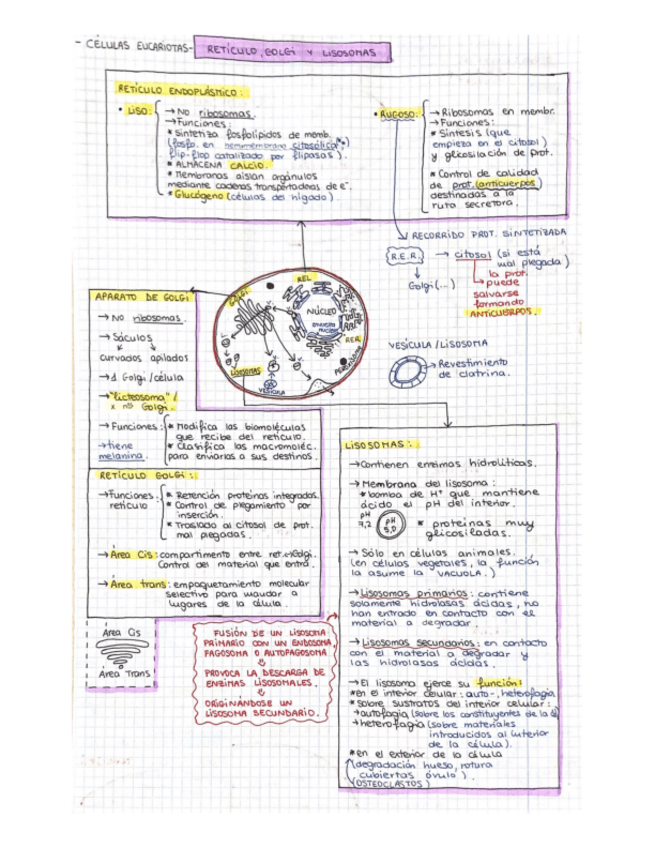 - CÉLULAS EUCARIOTAS- RETÍCULO, GOLGI Y LISOSOMAS
RETÍCULO ENDOPLÁSTICO:
• LISO:
→ No ribosomas.
→ Funciones:
* Sintetiza fosfolípidos de memb.
(fosfo. en hemimembrana citosólica
flip-flop catalizado por flipasas).
* ALMACENA CALCIO.
* Membranas aíslan orgánulos
mediante cadenas transportadoras de e⁻.
* Glucógeno (células del hígado).
• RUGOSO:
→ Ribosomas en membr.
→ Funciones:
* Síntesis (que
empieza en el citosol)
y glicosilación de prot.
* Control de calidad
de prot. (anticuerpos)
destinadas a la
ruta secretora.
RECORRIDO PROT. SINTETIZADA
R.E.R. → citosol (si está
mal plegada)
Golgi (...)
la prot.
puede
salvarse
formando
ANTICUERPOS.
REL
GOLGI
NÚCLEO
RER
LISOSOMAS
VESÍCULA
APARATO DE GOLGI
→ No ribosomas.
→ Sáculos
curvados apilados
→ 1 Golgi/célula
→ "Dictiosoma" /
x nº Golgi.
→ Funciones:
* Modifica las biomoléculas
que recibe del retículo.
* Clasifica las macromoléc.
para enviarlas a sus destinos.
→ tiene
melanina.
VESÍCULA / LISOSOMA
→ Revestimiento
de clatrina.
RETÍCULO GOLGI:
→ Funciones
retículo
* Retención proteínas integradas.
* Control de plegamiento por
inserción.
* Traslado al citosol de prot.
mal plegadas.
→ Área Cis: compartimento entre ret. y Golgi.
Control del material que entra.
→ Área trans: empaquetamiento molecular
selectivo para mandar a
lugares de la célula.
Área Cis
Área Trans
FUSIÓN DE UN LISOSOMA
PRIMARIO CON UN ENDOSOMA,
FAGOSOMA O AUTOFAGOSOMA
PROVOCA LA DESCARGA DE
ENZIMAS LISOSOMALES.
ORIGINÁNDOSE UN
LISOSOMA SECUNDARIO.
LISOSOMAS:
→ Contienen enzimas hidrolíticas.
→ Membrana del lisosoma:
* bomba de H⁺ que mantiene
ácido el pH del interior.
pH
7,2
pH
5,0
* proteínas muy
glicosiladas.
→ Sólo en células animales.
(en células vegetales, la función
la asume la VACUOLA.)
→ Lisosomas primarios: contiene
solamente hidrolasas ácidas, no
han entrado en contacto con el
material a degradar.
→ Lisosomas secundarios: en contacto
con el material a degradar y
las hidrolasas ácidas.
→ El lisosoma ejerce su función:
* En el interior celular: auto-, heterofagia
* sobre sustratos del interior celular:
→ autofagia (sobre los constituyentes de la
→ heterofagia (sobre materiales
introducidos al interior
de la célula).
* en el exterior de la célula
(degradación hueso, rotura
cubiertas óvulo).
(OSTEOCLASTOS)